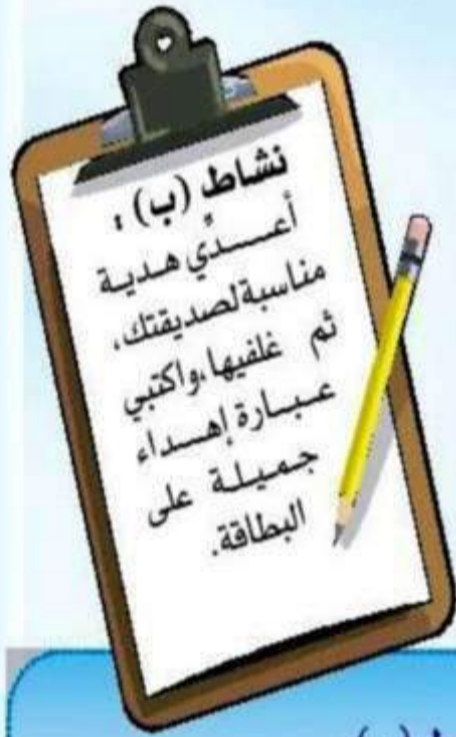 نشاط (ب) :
أعــــدِّي هـديـة
مناسبة لصديقتك،
ثم غلفيها،واكتبي
عـبـارة إهـــداء
جـمـيـلـة على
البطاقة.